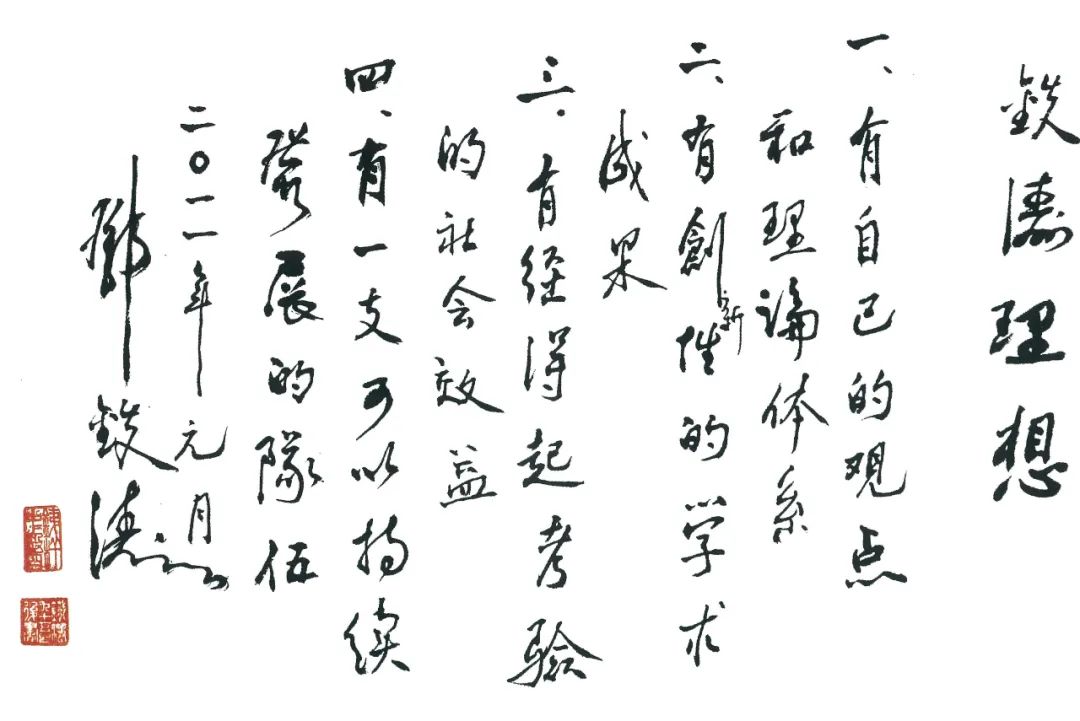 鉄濤理想
一、有自己的观点
和理論体系
二、有創新性的学术
成果
三、有经得起考验
的社会效益
四、有一支可以持续
發展的隊伍
二〇一一年元月
鄧鉄濤